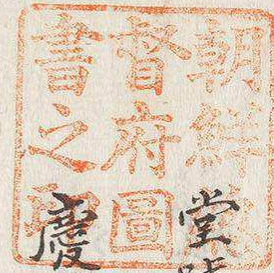 朝鮮總
督府圖
書之印
堂
慶